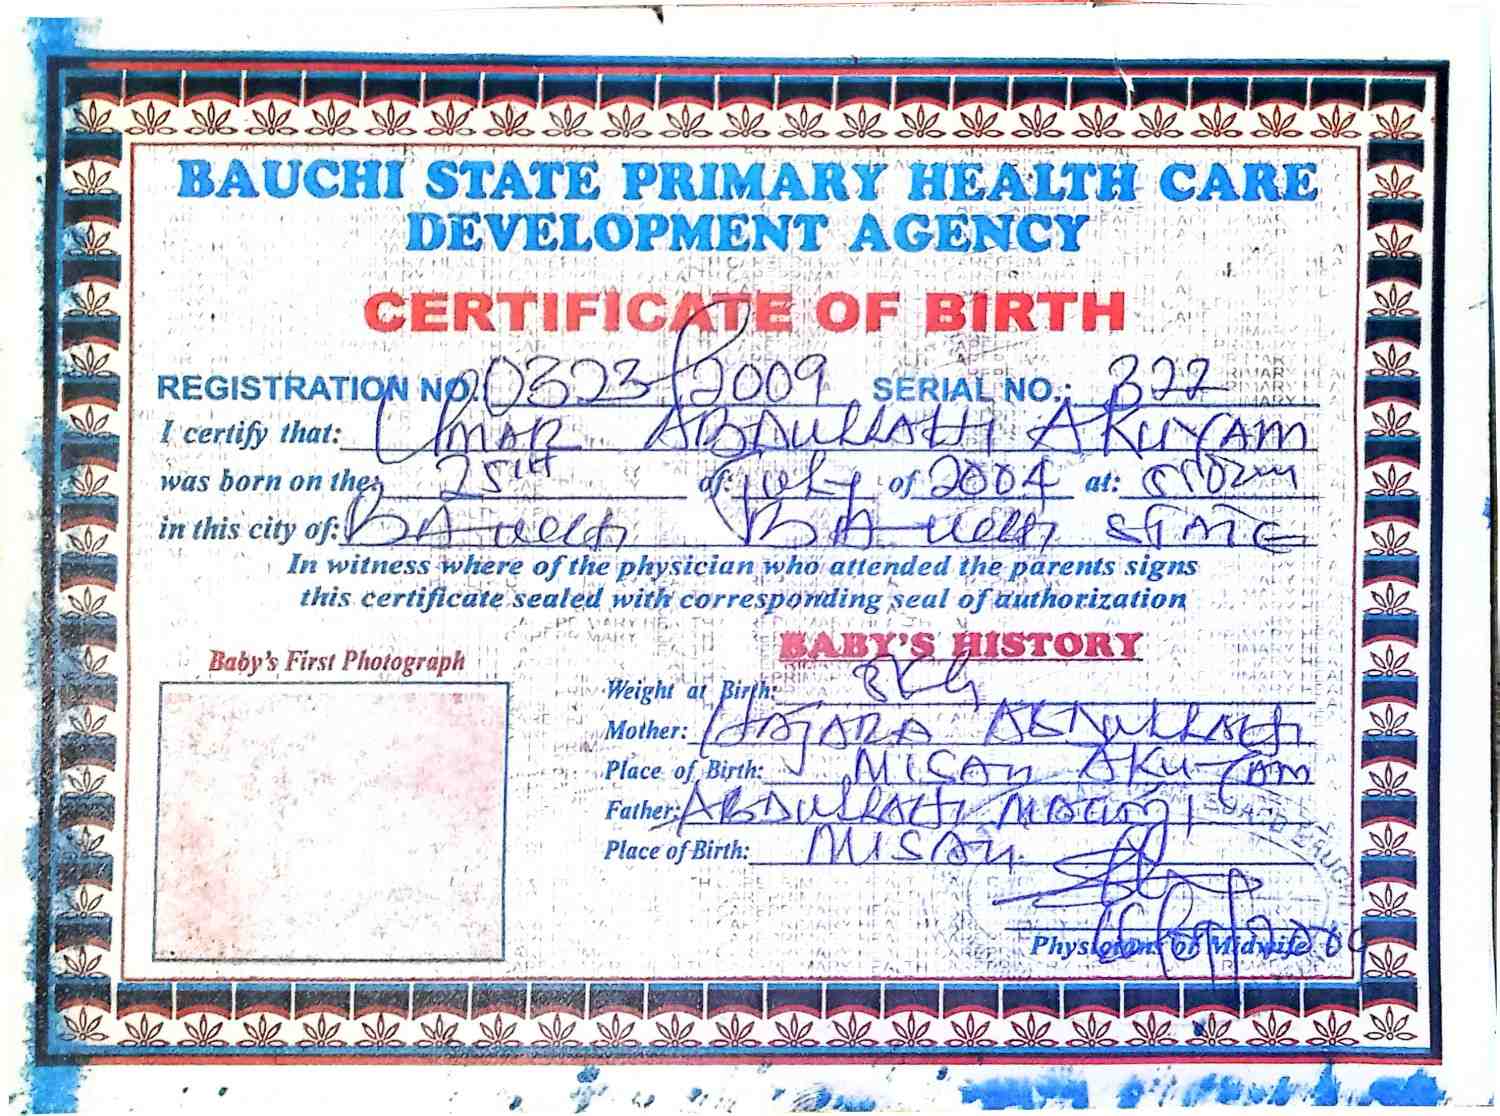 BAUCHI STATE PRIMARY HEALTH CARE
DEVELOPMENT AGENCY
CERTIFICATE OF BIRTH
REGISTRATION NO. 00323/2009 SERIAL NO.: 322
I certify that: Umar ABDULLAHI AKUYAM
was born on the: 25TH of: July of 2004 at:
in this city of: BAUCHI BAUCHI STATE
In witness where of the physician who attended the parents signs
this certificate sealed with corresponding seal of authorization
Baby's First Photograph
BABY'S HISTORY
Weight at Birth: KG
Mother: HAJARA ABDULLAHI
Place of Birth: MISAU AKUYAM
Father: ABDULLAHI
Place of Birth: MISAU.
Physicians or Midwife